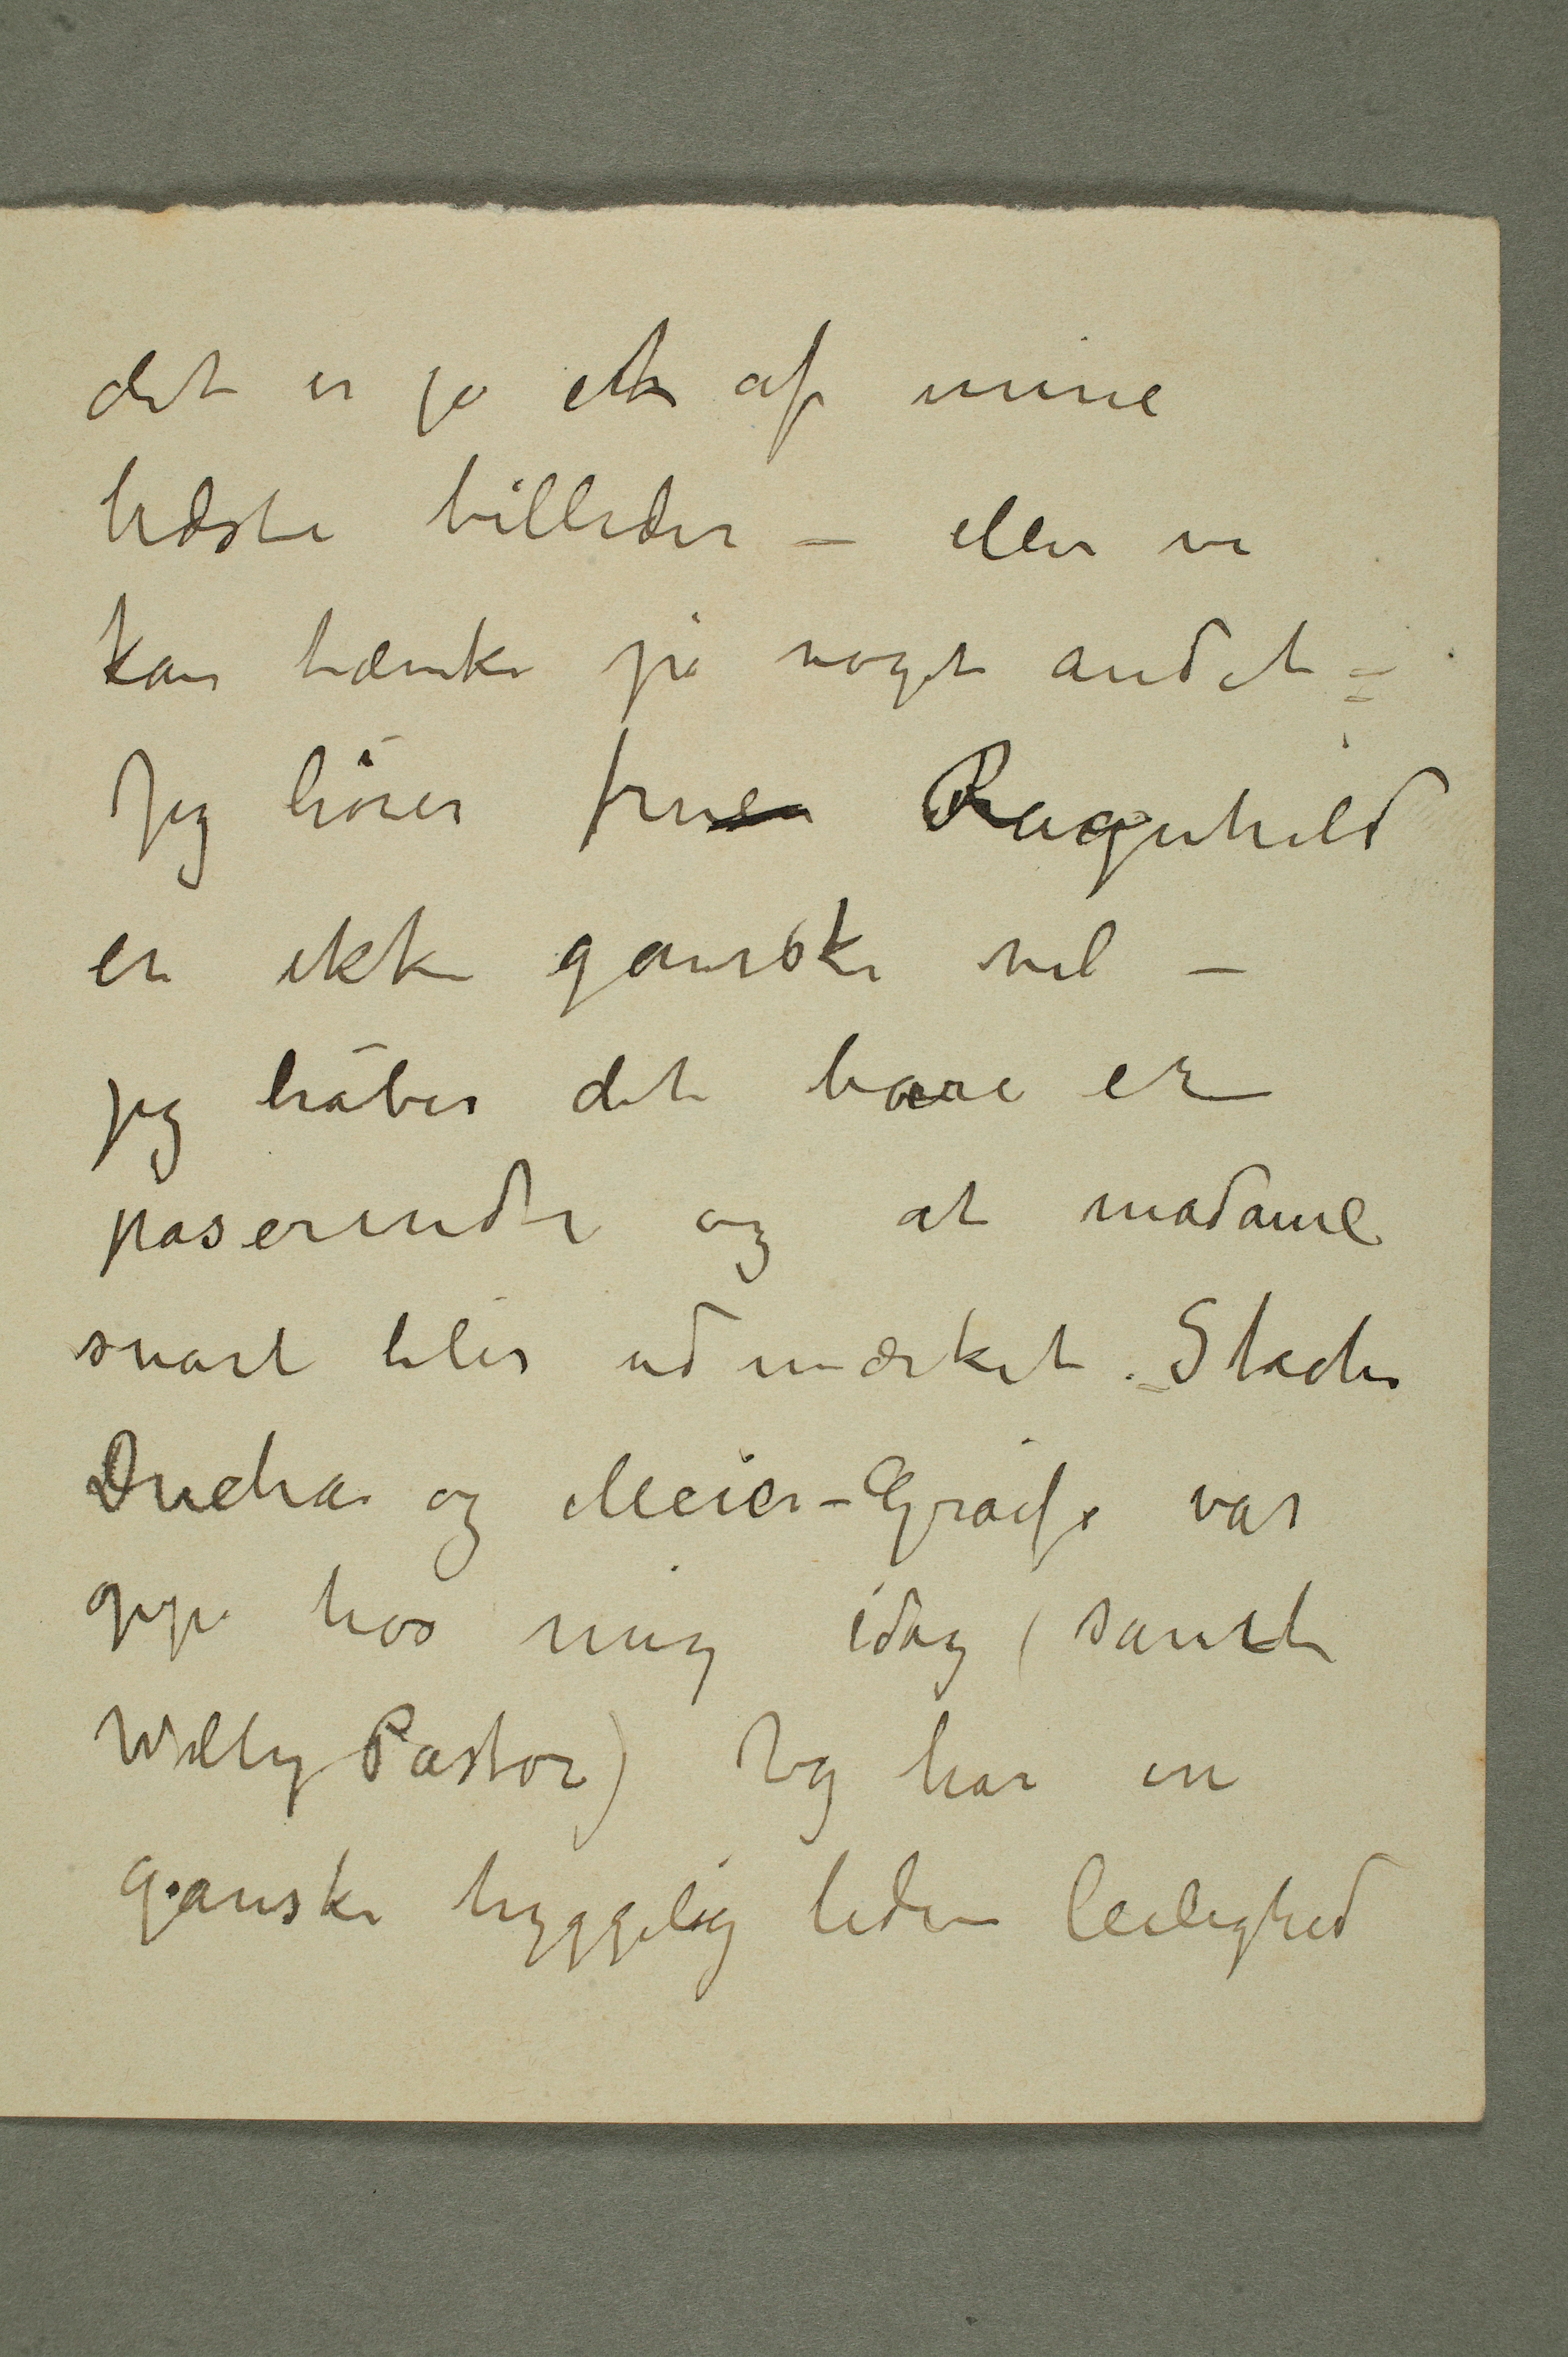 det er jo et af mine
bedste billeder – eller vi
kan tænke på noget andet –
Jeg hører fru Ragnhild
er ikke ganske vel –
jeg håber det bare er
paserende og at madame
snart blir udmærket. – Stachu
Ducha og Meier-Gräfe var
opp hos mig idag (samt
Willy Pastor) Jeg har en
ganske hyggelig liden leilighed